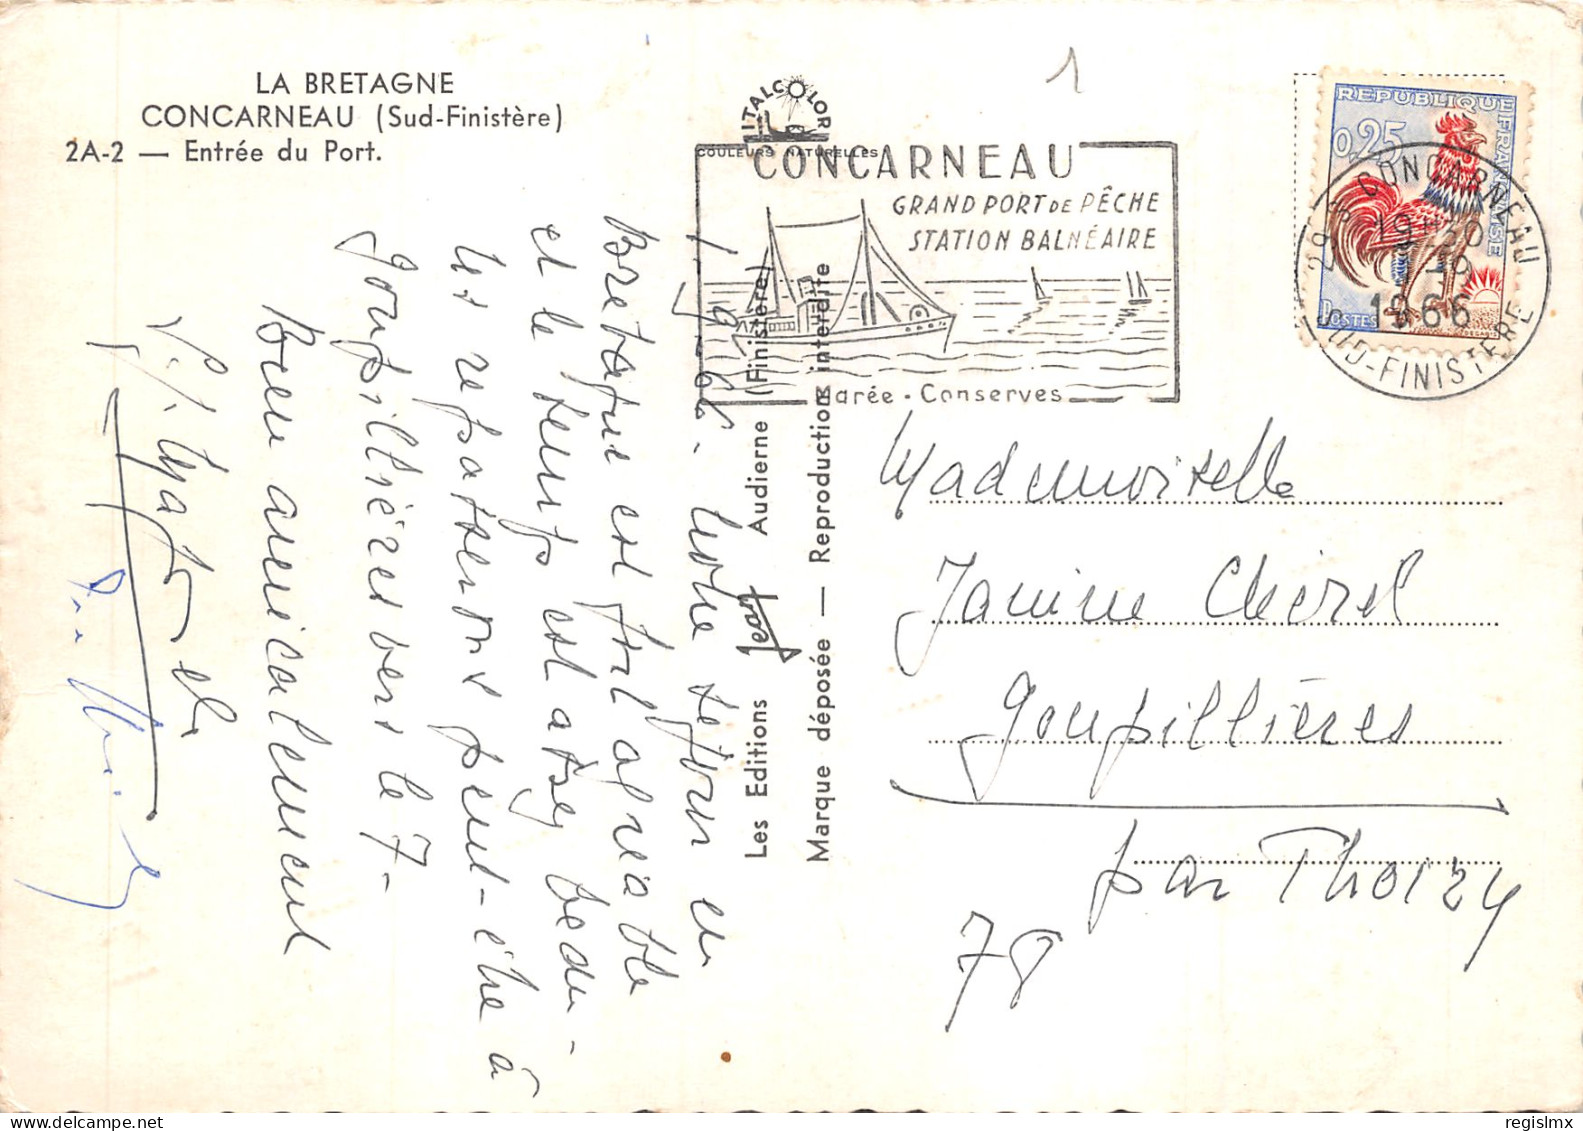 LA BRETAGNE
CONCARNEAU (Sud-Finistère)
2A-2 — Entrée du Port.
1-9-66. Notre séjour en
Bretagne est très agréable
et le temps est assez beau -
les repasserons peut-être à
Goupillières vers le 7-
Bien amicalement
ITALCOLOR
COULEURS NATURELLES
Les Editions Jean Audierne (Finistère)
Marque déposée — Reproduction interdite
CONCARNEAU
GRAND PORT DE PÊCHE
STATION BALNÉAIRE
arée - Conserves
1
REPUBLIQUE FRANÇAISE
0,25
POSTES
CONCARNEAU
1966
SUD-FINISTERE
Mademoiselle
Janine Chérel
Goupillières
par Thoiry
78
regislmx